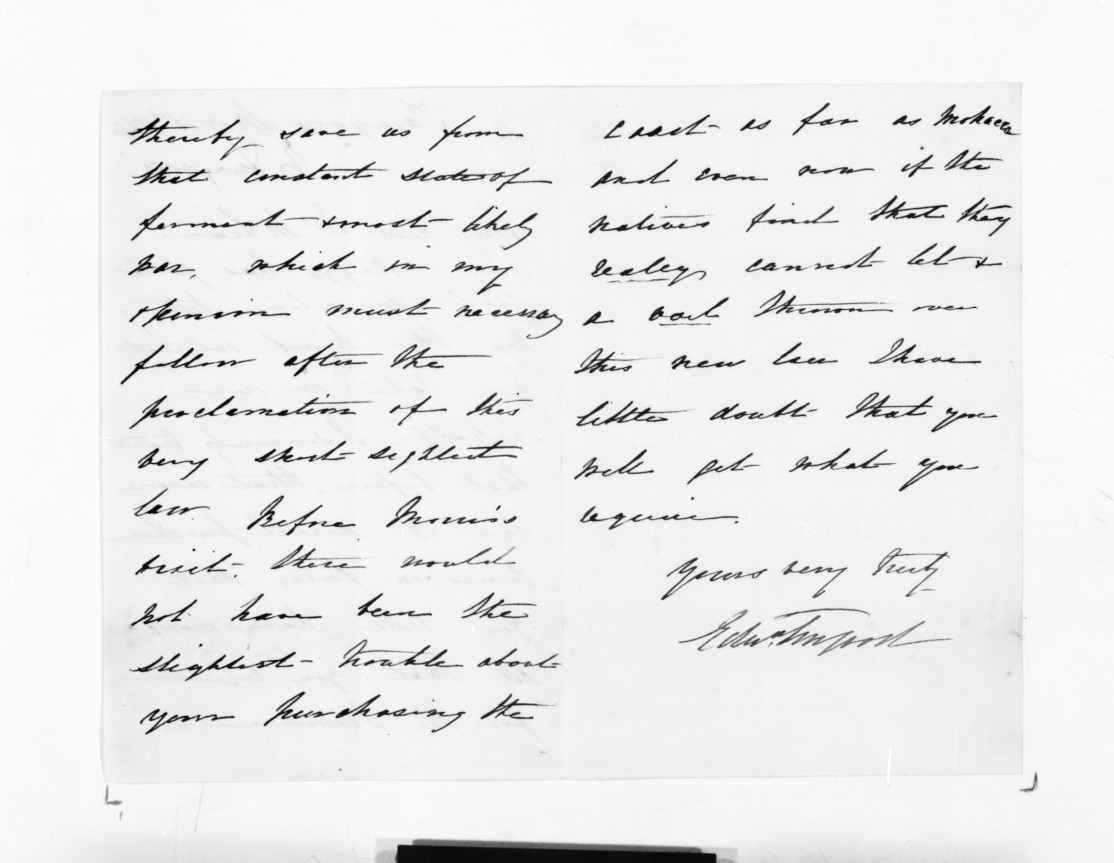 thereby save us from
that constant state of
ferment & most likely
war, which in my
opinion must necessary
follow after the
proclamation of this
very short sighted
law. Before Morris's
visit there would
not have been the
slightest trouble about
your purchasing the
coast as far as Mohaca
and even now if the
natives find that they
really cannot let &
a veil thrown over
this new law I have
little doubt that you
will get what you
require.
Yours very truly
Edw.